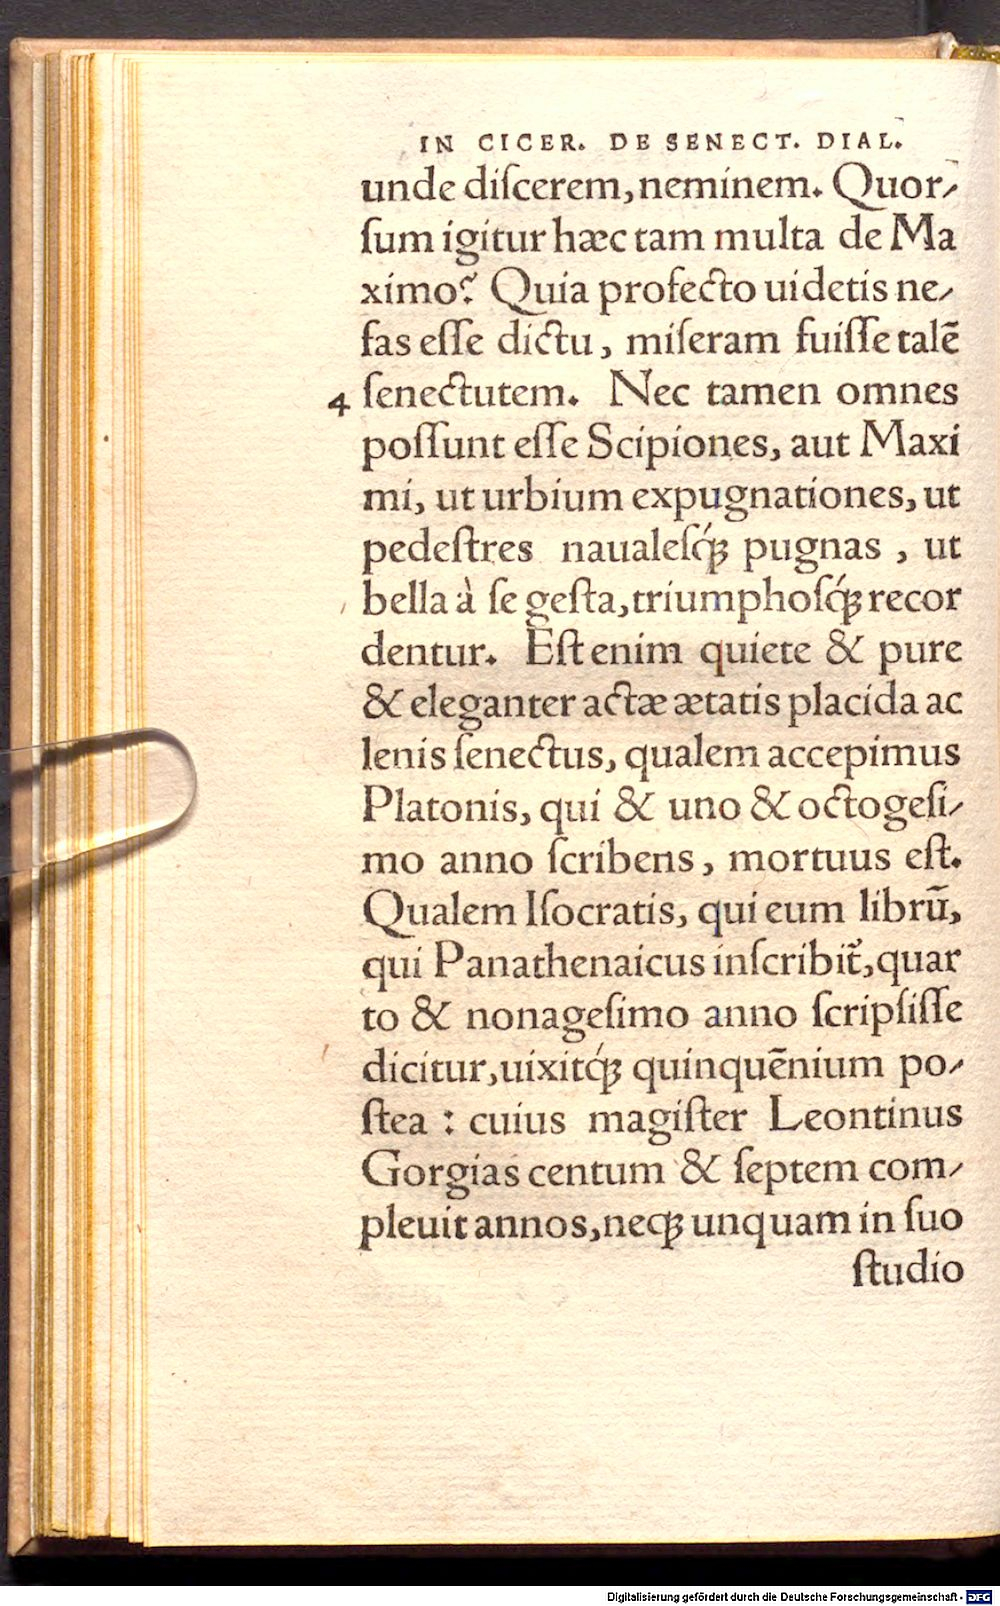 IN CICER. DE SENECT. DIAL.
unde diſcerem, neminem. Quor⸗
ſum igitur hæc tam multa de Ma
ximo? Quia profecto uidetis ne⸗
fas eſſe dictu, miſeram fuiſſe talē
4 ſenectutem. Nec tamen omnes
poſſunt eſſe Scipiones, aut Maxi
mi, ut urbium expugnationes, ut
pedeſtres naualeſq́ꝫ pugnas , ut
bella à ſe geſta, triumphoſq́ꝫ recor
dentur. Eſt enim quiete & pure
& eleganter actæ ætatis placida ac
lenis ſenectus, qualem accepimus
Platonis, qui & uno & octogeſi⸗
mo anno ſcribens, mortuus eſt.
Qualem Iſocratis, qui eum librū,
qui Panathenaicus inſcribit᷑, quar
to & nonageſimo anno ſcripſiſſe
dicitur, uixitq́ꝫ quinquēnium po⸗
ſtea : cuius magiſter Leontinus
Gorgias centum & ſeptem com⸗
pleuit annos, neqꝫ unquam in ſuo
ſtudio
Digitalisierung gefördert durch die Deutsche Forschungsgemeinschaft - DFG